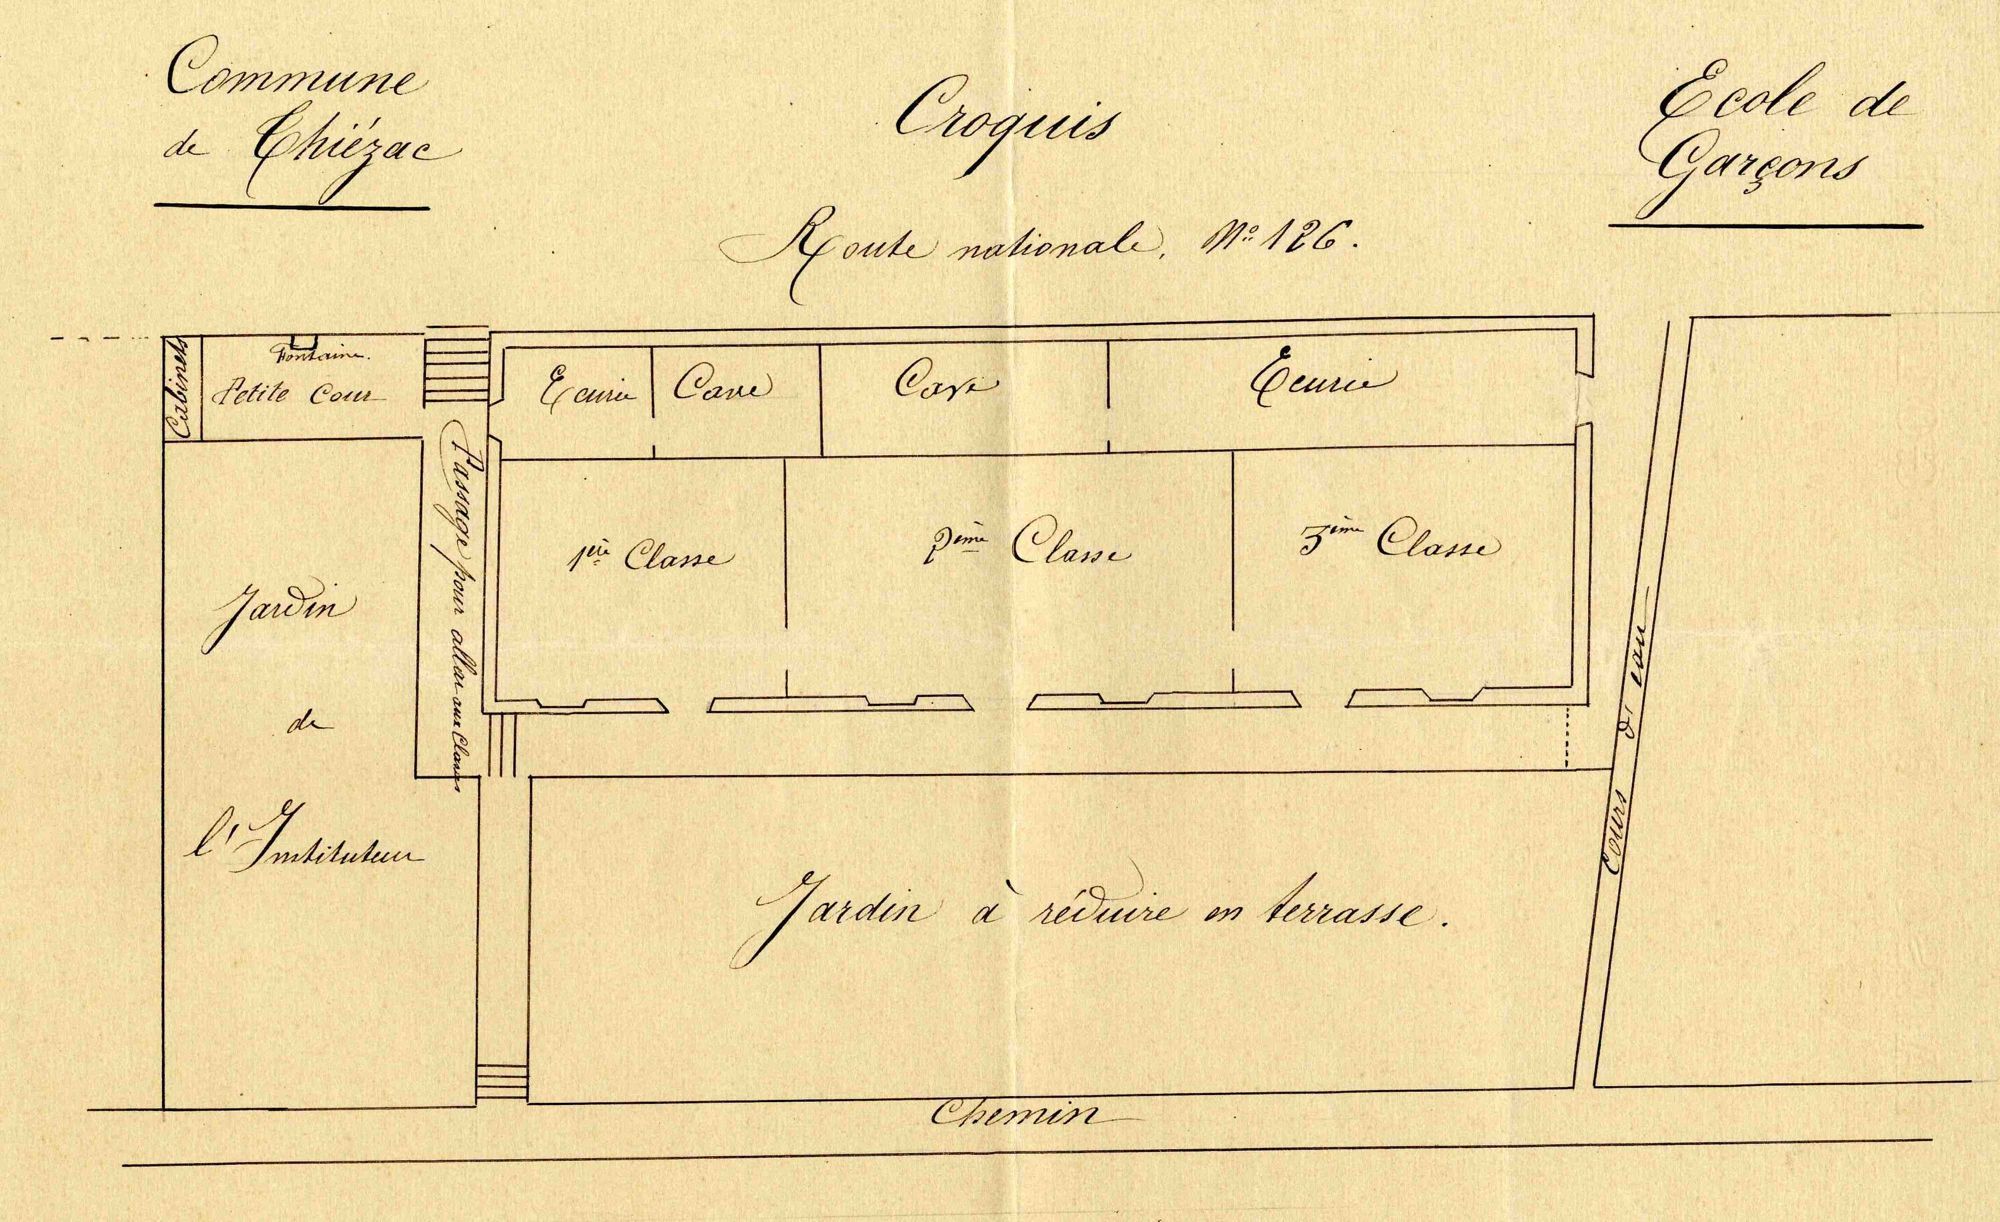 Commune
de Thiézac
Croquis
Ecole de
Garçons
Route nationale, No 126.
Cabinets
Fontaine.
Petite Cour
Ecurie
Cave
Cave
Ecurie
Passage pour aller aux Classes
1ère Classe
2ème Classe
3ème Classe
Jardin
de
l'Instituteur
Cours d'eau
Jardin à réduire en terrasse.
Chemin